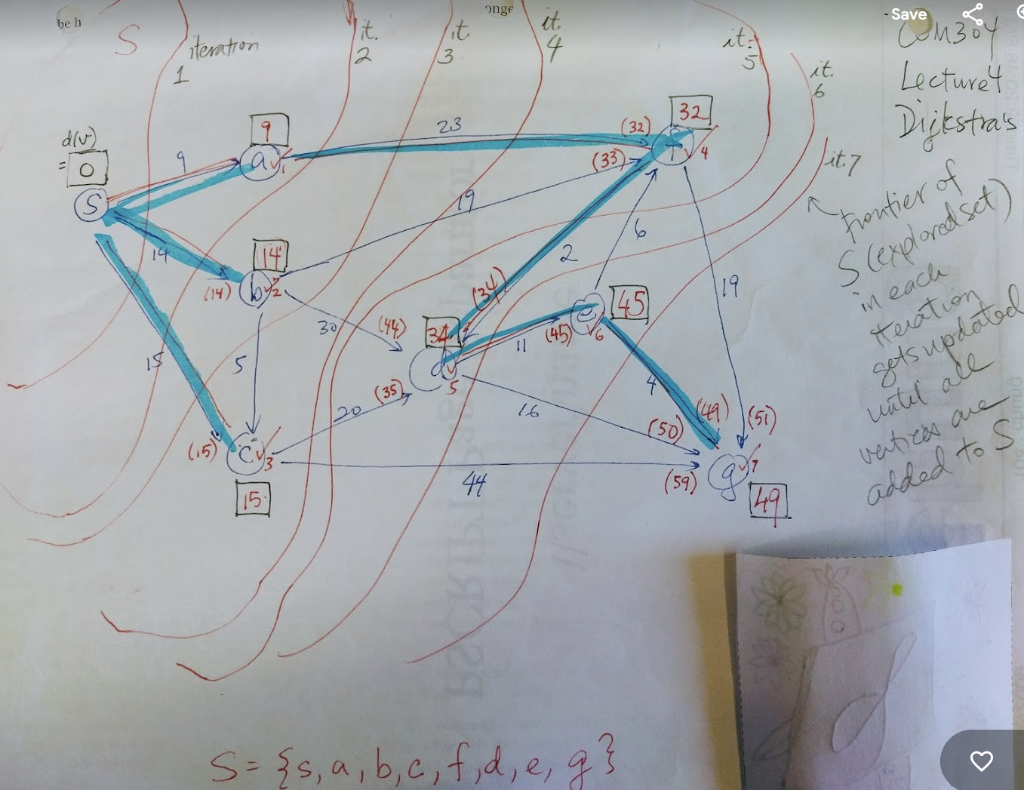 be h
onge
Save
S
iteration
1
it.
2
it.
3
it.
4
it.
5
it.
6
it.7
COM304
Lecture4
Dijkstra's
d(v)
= 0
S
9
9
a ✓1
23
(32)
32
f ✓4
(33)
19
14
14
(14)
b ✓2
2
6
19
15
5
30
(44)
(34)
34
45
e ✓6
(45)
11
d ✓5
(35)
20
16
4
(49)
(51)
(50)
(15)
c ✓3
15
44
(59)
g ✓7
49
frontier of
S (explored set)
in each
iteration
gets updated
until all
vertices are
added to S
S = {s, a, b, c, f, d, e, g}